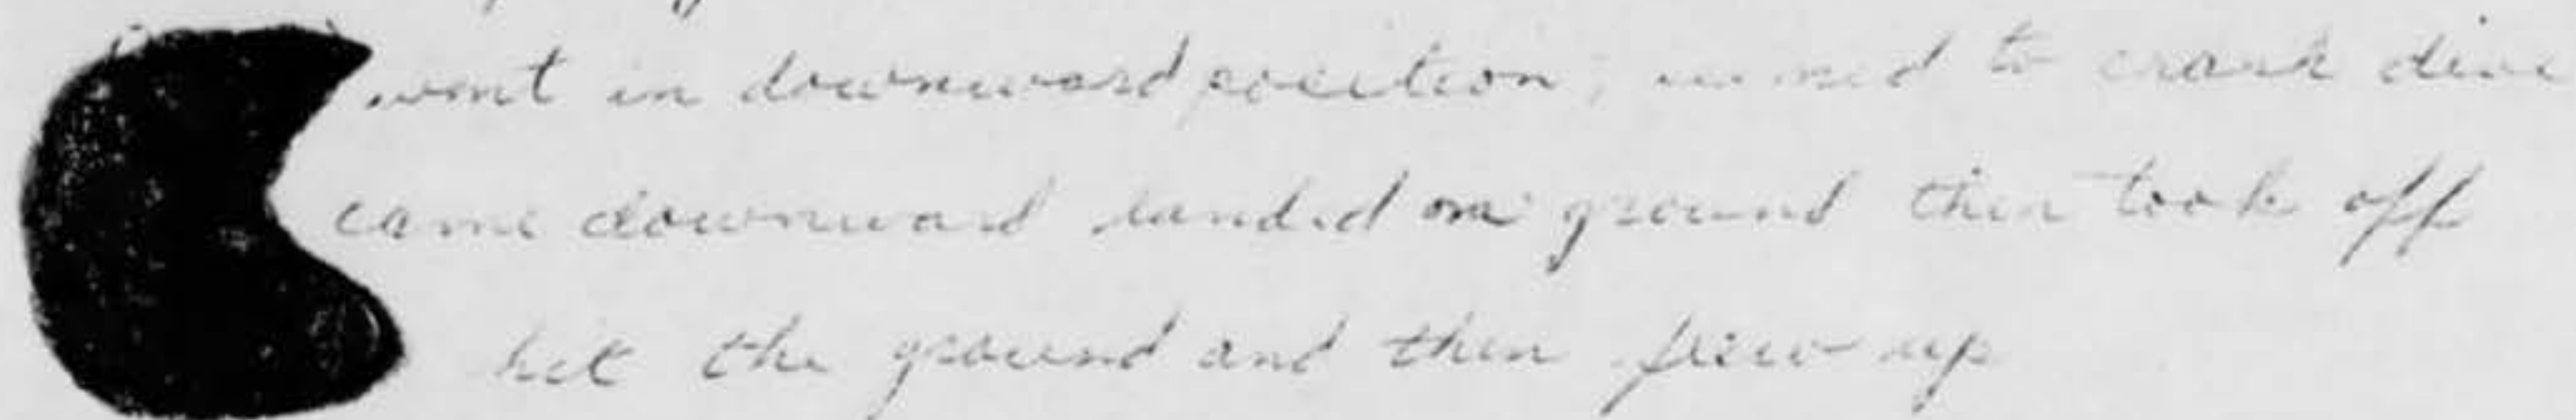 went in downward position, seemed to crash dive
came downward landed on ground then took off
hit the ground and then flew up